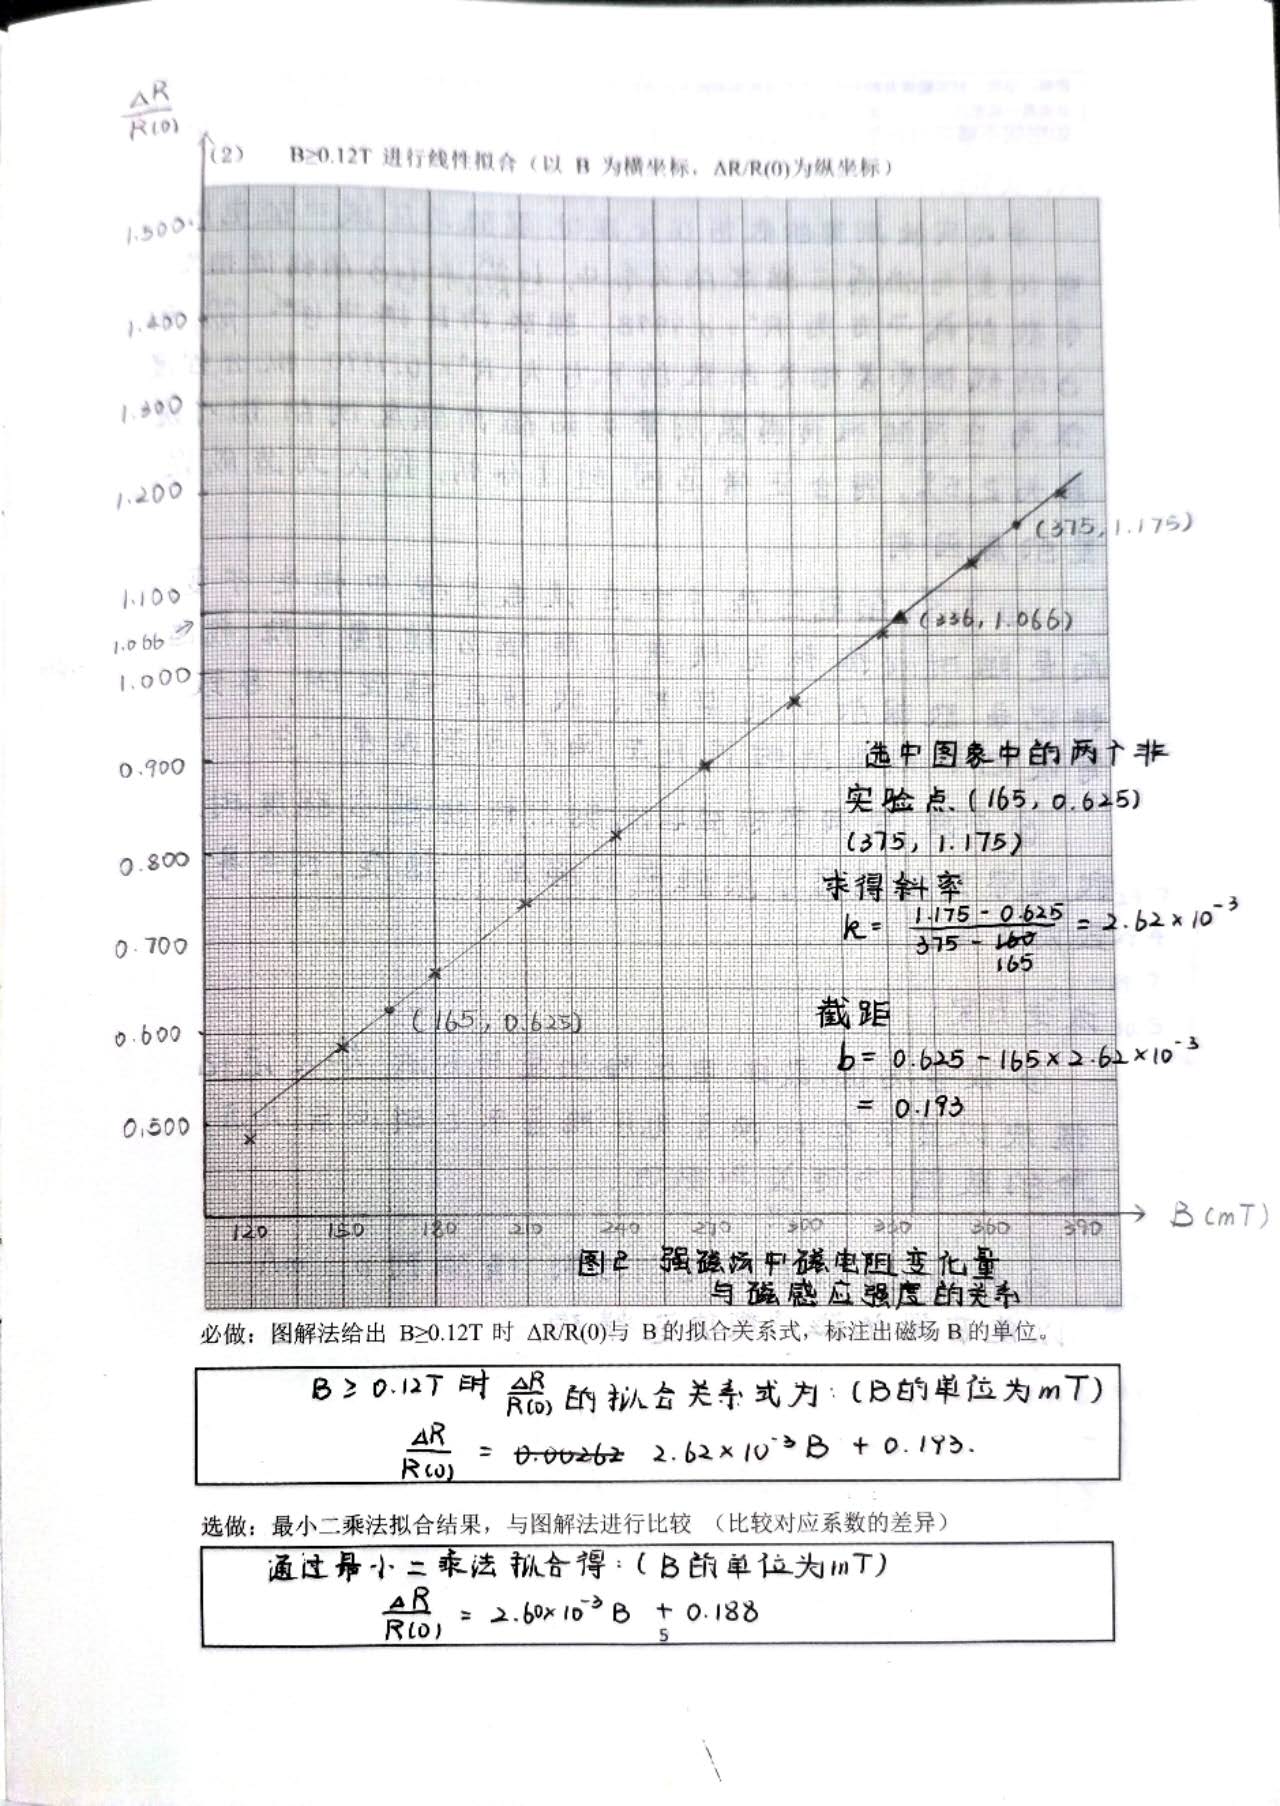 ΔR/R(0)
(2) B≥0.12T 进行线性拟合（以 B 为横坐标，ΔR/R(0)为纵坐标）
1.500
1.400
1.300
1.200
(375, 1.175)
1.100
1.066
(336, 1.066)
1.000
0.900
选中图象中的两个非
实验点 (165, 0.625)
(375, 1.175)
0.800
求得斜率
k = (1.175 - 0.625)/(375 - 165) = 2.62×10⁻³
0.700
(165, 0.625)
0.600
截距
b = 0.625 - 165×2.62×10⁻³
= 0.193
0.500
120 150 180 210 240 270 300 330 360 390 B(mT)
图2 强磁场中磁电阻变化量
与磁感应强度的关系
必做：图解法给出 B≥0.12T 时 ΔR/R(0)与 B 的拟合关系式，标注出磁场 B 的单位。
B ≥ 0.12T 时 ΔR/R(0) 的拟合关系式为：(B的单位为mT)
ΔR/R(0) = 0.00262 2.62×10⁻³ B + 0.193.
选做：最小二乘法拟合结果，与图解法进行比较 （比较对应系数的差异）
通过最小二乘法拟合得：(B的单位为mT)
ΔR/R(0) = 2.60×10⁻³ B + 0.188
5